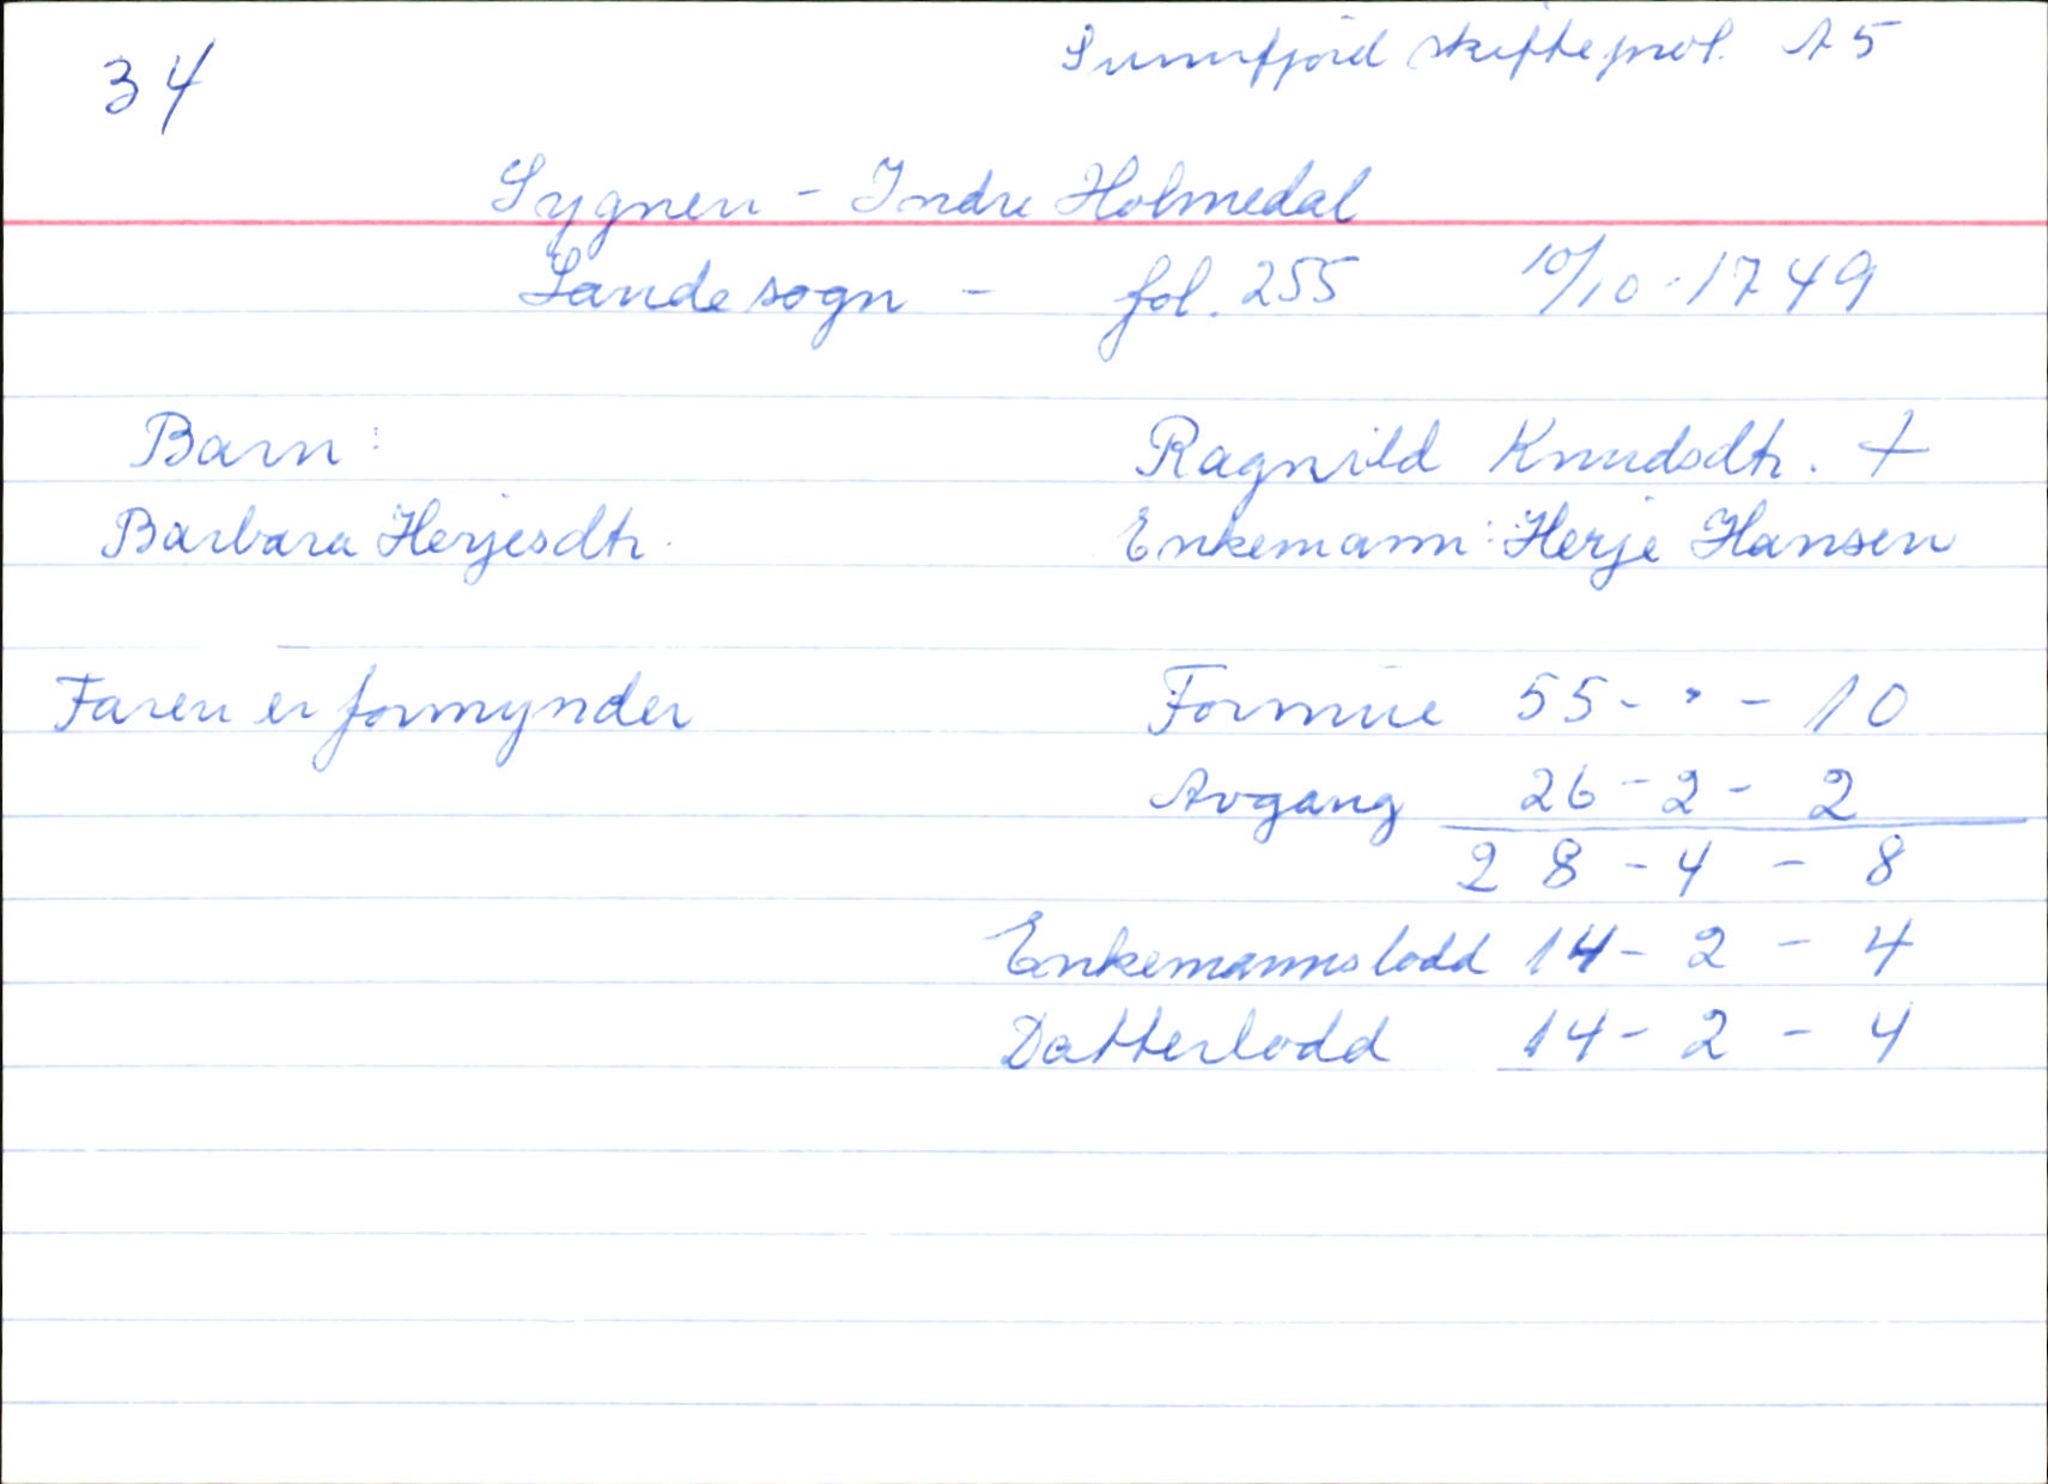 34
Sunnfjord skifteprot. A 5
Sygnen - Indre Holmedal
Sande sogn - fol. 255 10/10-1749
Barn:
Ragnild Knudsdtr. +
Barbara Herjesdtr.
Enkemann: Herje Hansen
Faren er formynder
Formue 55 - " - 10
Avgang 26 - 2 - 2
28 - 4 - 8
Enkemannslodd 14 - 2 - 4
Datterlodd 14 - 2 - 4